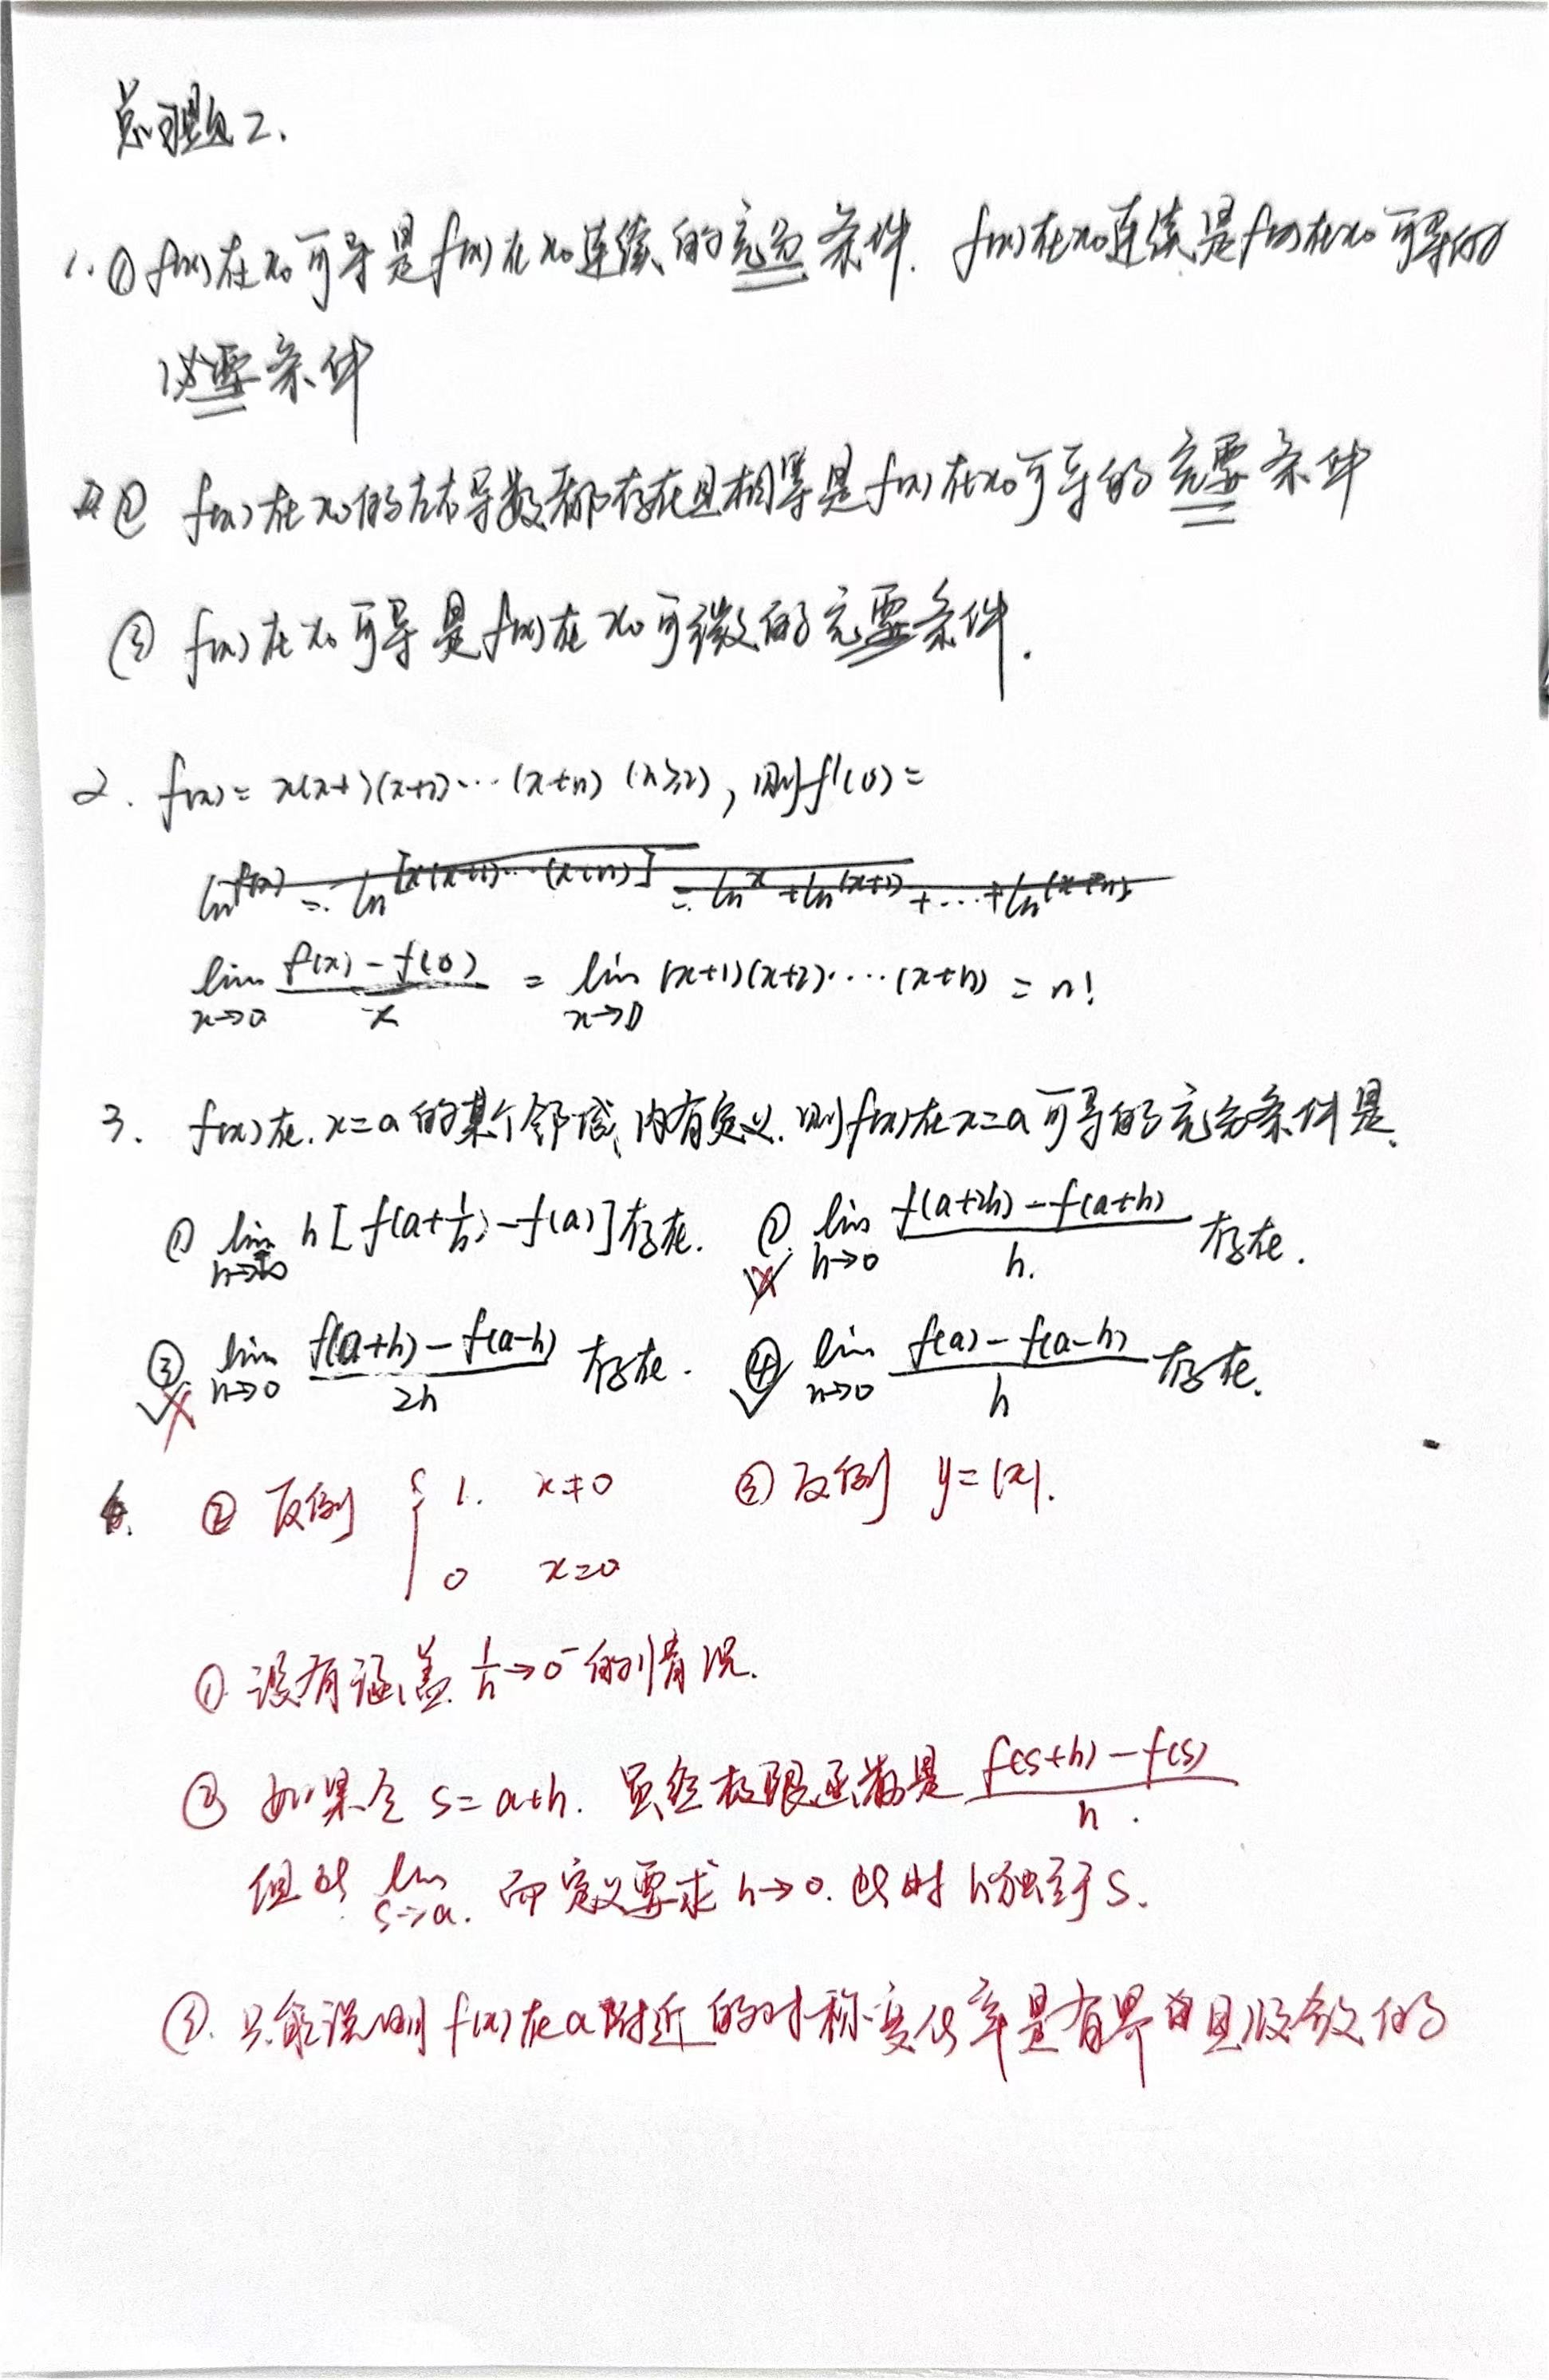 总习题2.
1. ① f(x)在x₀可导是f(x)在x₀连续的充分条件. f(x)在x₀连续是f(x)在x₀可导的
必要条件
② f(x)在x₀的左右导数都存在且相等是f(x)在x₀可导的充要条件
③ f(x)在x₀可导是f(x)在x₀可微的充要条件.
2. f(x)= x(x+1)(x+2)···(x+n) (n≥2), 则f'(0)=
ln^{f(x)} = ln^{[x(x+1)···(x+n)]} = ln^x + ln^{(x+1)} +···+ ln^{(x+n)}
lim_{x→0} \frac{f(x)-f(0)}{x} = lim_{x→0} (x+1)(x+2)····(x+n) = n!
3. f(x)在.x=a的某个邻域内有定义.则f(x)在x=a可导的充分条件是.
① lim_{h→+∞} h[f(a+\frac{1}{h})-f(a)]存在. ② lim_{h→0} \frac{f(a+2h)-f(a+h)}{h.} 存在.
③ lim_{h→0} \frac{f(a+h)-f(a-h)}{2h} 存在. ④ lim_{h→0} \frac{f(a)-f(a-h)}{h} 存在.
② 反例 { 1. x≠0 ③ 反例 y=|x|.
0 x=0
① 没有涵盖 \frac{1}{h}→0⁻的情况.
② 如果令 s=a+h. 虽然极限函数是 \frac{f(s+h)-f(s)}{h.}
但此 lim_{s→a}. 而定义要求 h→0. 此时 h独立于s.
③. 只能说明 f(x)在a附近的对称变化率是有界且收敛的